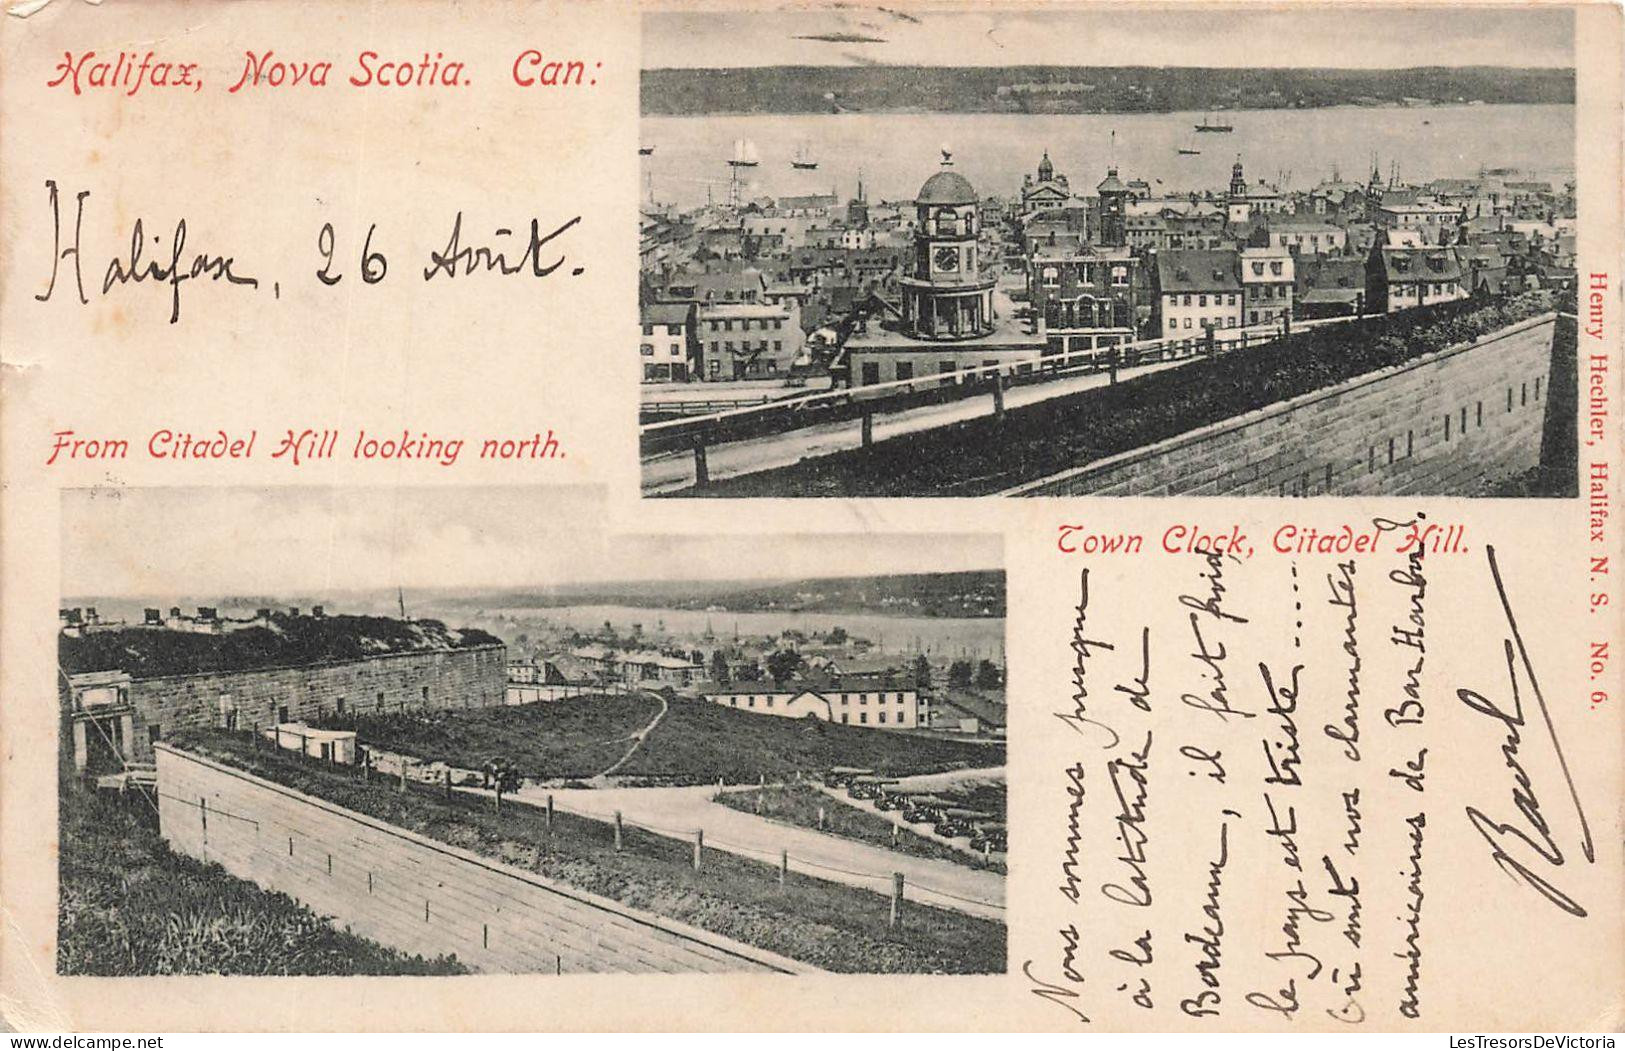 Halifax, Nova Scotia. Can:
Halifax, 26 Août.
From Citadel Hill looking north.
Town Clock, Citadel Hill.
Nous sommes presque
à la latitude de
Bordeaux, il fait froid,
le pays est triste......
Où sont nos charmantes
américaines de Bar Harbor?
Raoul
Henry Hechler, Halifax N. S. No. 6.
LesTresorsDeVictoria
delcampe.net